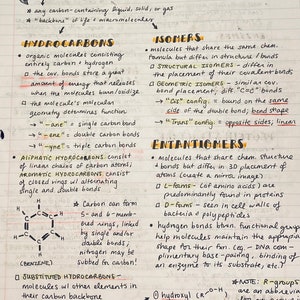 any containing liquid, solid, or gas
"backbone" of life + macromolecules
HYDROCARBONS
• organic molecules consisting
entirely carbon + hydrogen
□ the cov. bonds store a great
amount of energy that releases
when the molecules burn/oxidize
□ the molecule's molecular
geometry determines function
→ "-ane" = single carbon bond
→ "-ene" = double carbon bonds
→ "-yne" = triple carbon bonds
• ALIPHATIC HYDROCARBONS consist
of linear chains of carbon atoms;
AROMATIC HYDROCARBONS consist
of closed rings w/ alternating
single and double bonds
H
C
(BENZENE)
★ Carbon can form
5- and 6-membered
rings, linked
by single and/or
double bonds;
nitrogen may be
subbed in carbon!
□ SUBSTITUTED HYDROCARBONS -
molecules w/ other elements in
their carbon backbone
ISOMERS
molecules that share the same chem.
formula but differ in structure/bonds
□ STRUCTURAL ISOMERS - differ in
the placement of their covalent bonds
□ GEOMETRIC ISOMERS - similar cov.
bond placement, diff. "C=C" bonds
→ "Cis" config. = bound on the same
side of the double bond; bend shape
→ "Trans" config. = opposite sides; linear
ENANTIOMERS
• Molecules that share chem. structure
+ bonds but differ in 3D placement of
atoms (create a mirror image)
□ L-forms - (of amino acids) are
predominantly found in proteins
□ D-forms - seen in cell walls of
bacteria + polypeptides
• hydrogen bonds btwn. functional groups
help molecules maintain the appropriate
shape for their fxn. (ex. - DNA complimentary
base-pairing, binding of
an enzyme to its substrate, etc.)
① hydroxyl (R-O-H)
★NOTE: R-groups
are an abbreviation